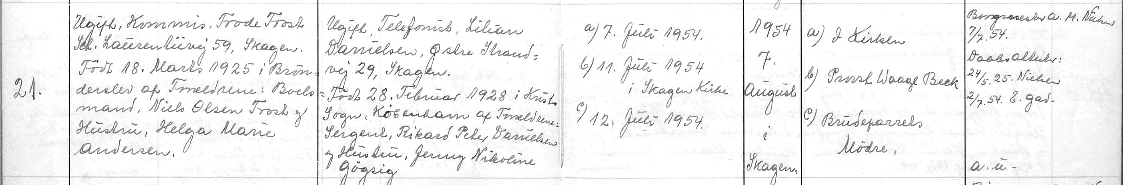 21.
Ugift, Kommis. Frode Trost
Sct. Laurentiivej 59, Skagen.
Født 18. Marts 1925 i Brøn-
derslev af Forældrene: Bocks-
mand. Niels Olsen Trost og
Hustru, Helga Marie
Andersen.
Ugift, Telefonist, Lilian
Danielsen, Østre Strand-
vej 29, Skagen.
Født 28. Februar 1928 i
Sogn, København af Forældrene:
Sergent, Rikard Peter Danielsen
og Hustru, Jenny Nikoline
Gögsig
a) 7. Juli 1954.
b) 11. Juli 1954
i Skagen Kirke
c) 12. Juli 1954.
1954
7.
August
i
Skagen.
a) I Kirken
b) Provst Waage Beck
c) Brudeparrets
Mødre.
Borgmester A. M. Nielsen
7/7. 54.
Daabsattester:
24/5. 25. Nielsen
2/7. 54. E. Gad.
a. u.